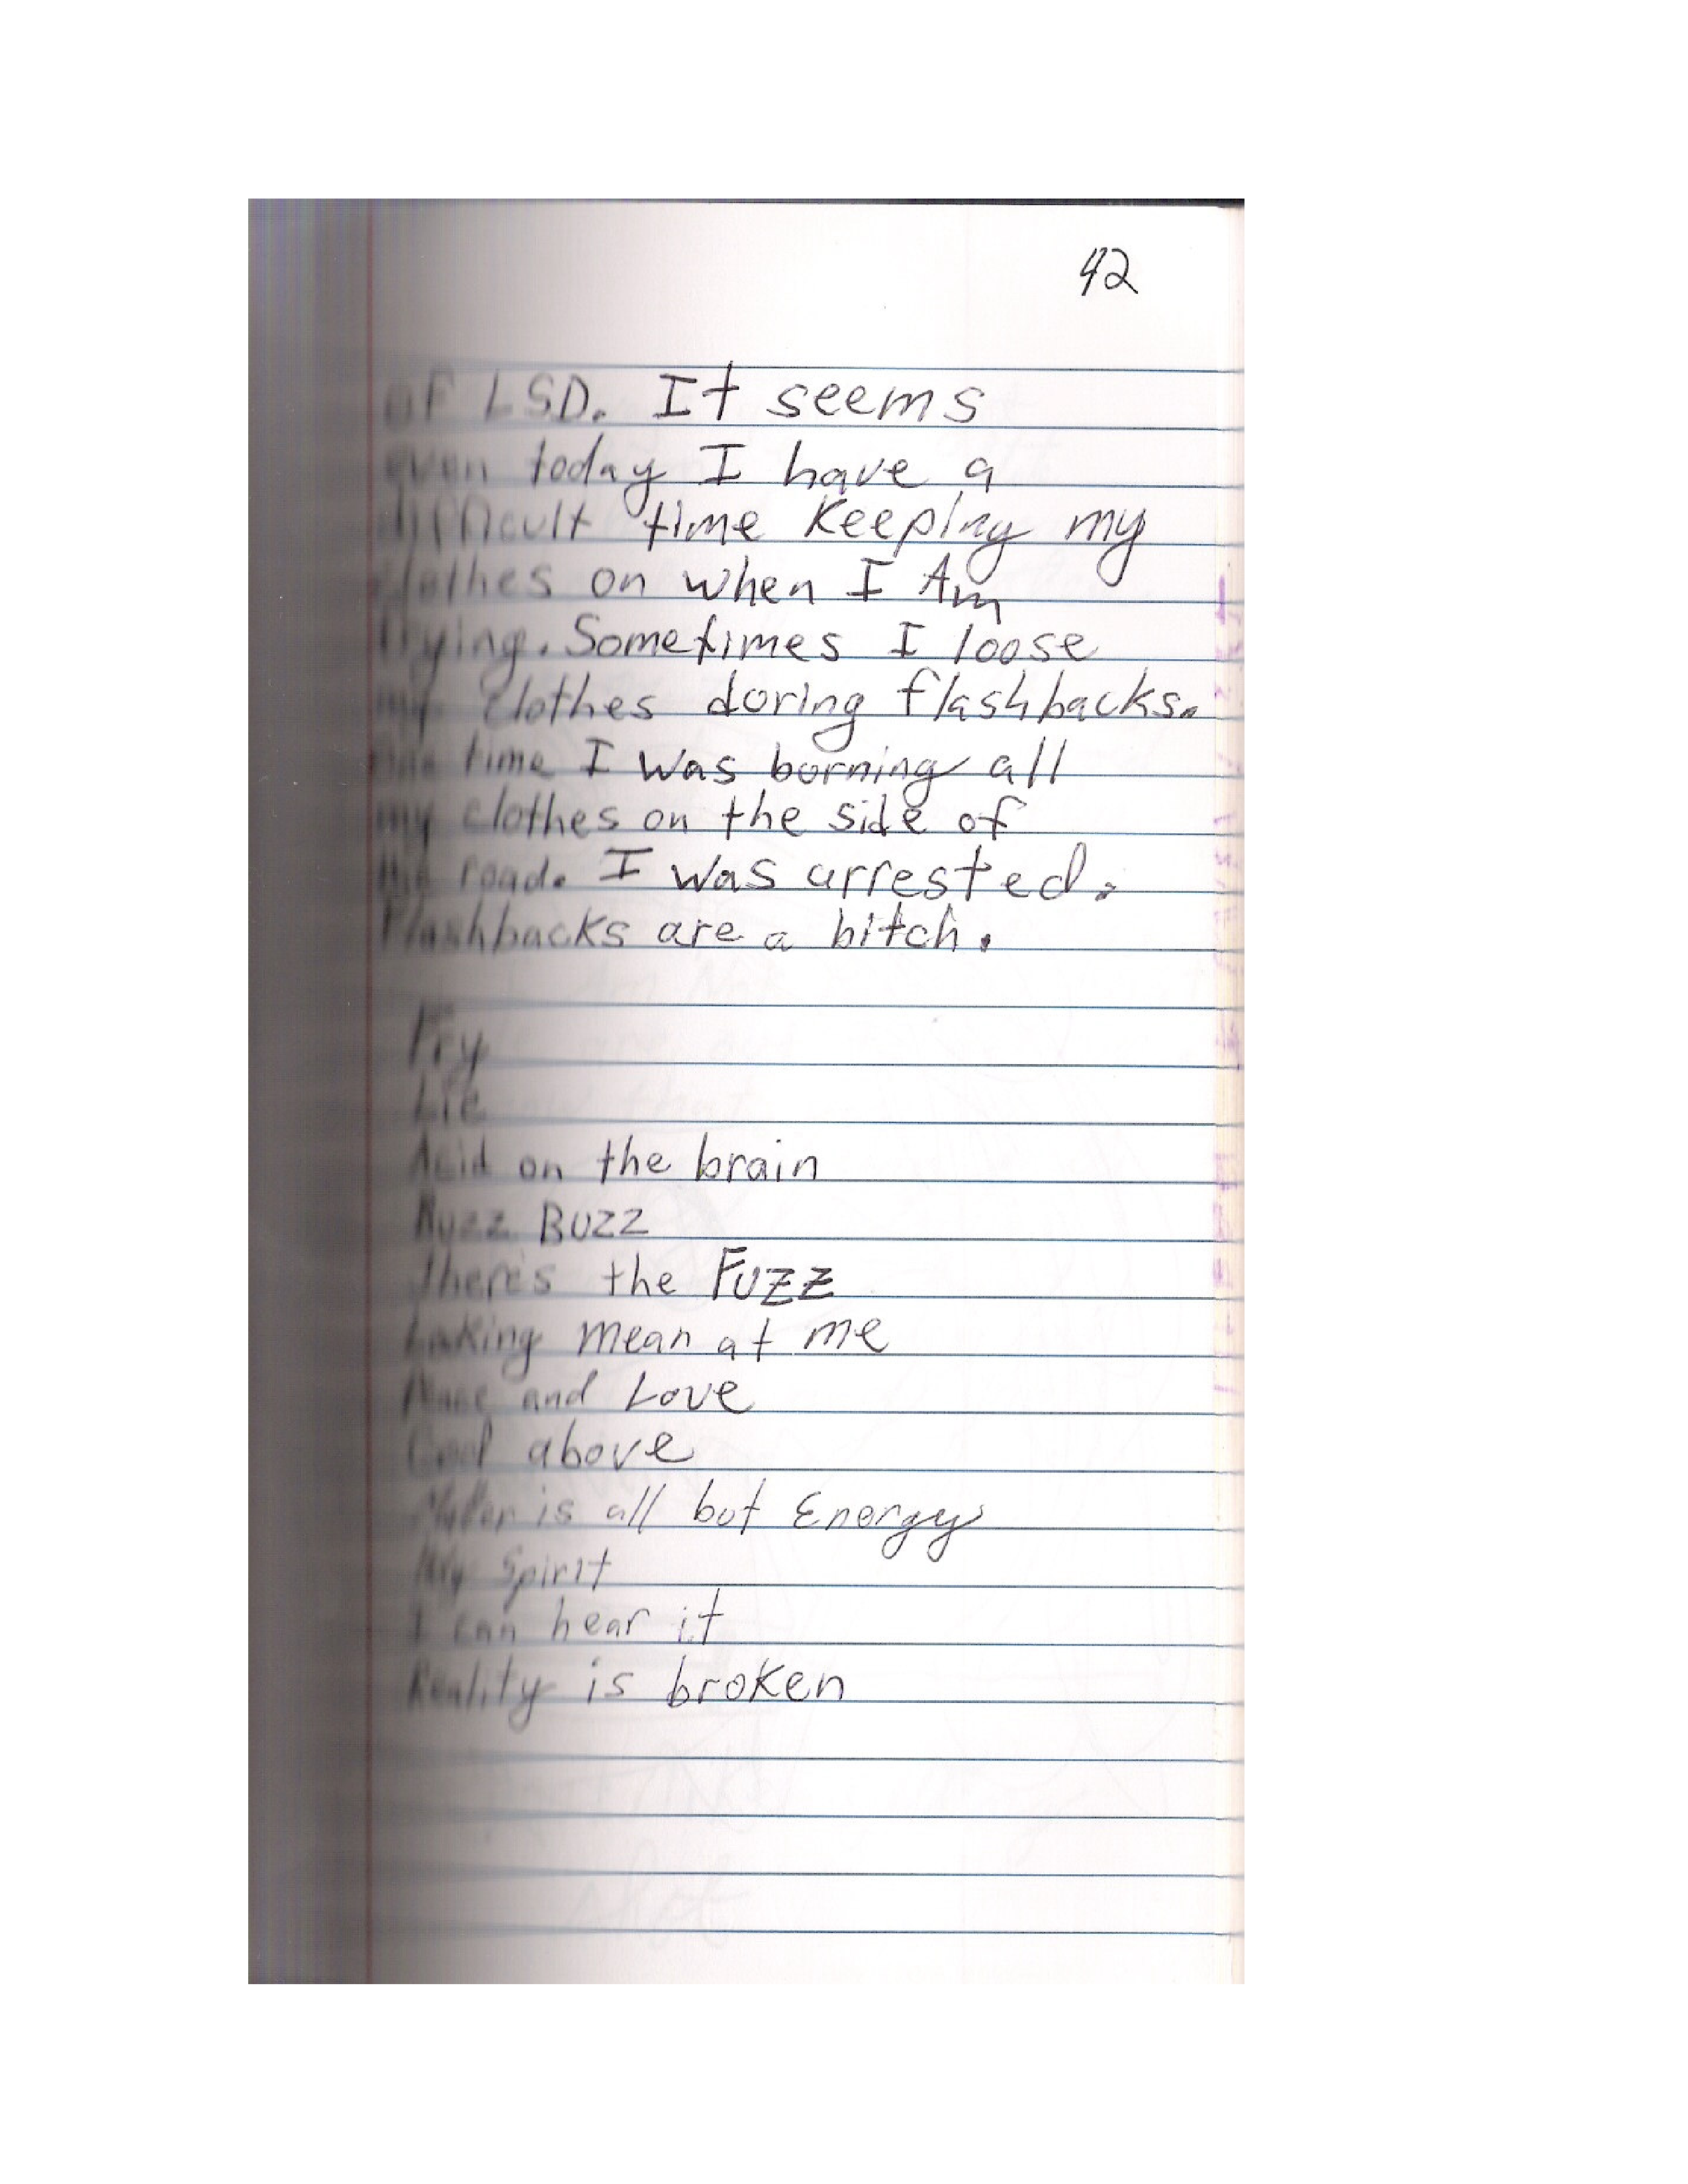 42
of LSD. It seems
even today I have a
difficult time Keeping my
clothes on when I Am
Frying. Sometimes I loose
my clothes during flashbacks.
One time I was burning all
my clothes on the side of
the road. I was arrested.
Flashbacks are a bitch.
Fry
Lie
Acid on the brain
Buzz Buzz
There's the Fuzz
Looking mean at me
Peace and Love
God above
is all but Energy
My Spirit
I can hear it
Reality is broken